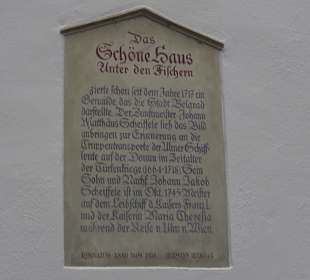 Das
Schöne Haus
Unter den Fischern
zierte schon seit dem Jahre 1717 ein
Gemälde das die Stadt Belgrad
darstellte. Der Zunftmeister Johann
Matthäus Scheiffele ließ das Bild
anbringen zur Erinnerung an die
Truppentransporte der Ulmer Schiff-
leute auf der Donau im Zeitalter
der Türkenkriege (1664-1718) Sein
Sohn und Nachf. Johann Jakob
Scheiffele ist im Okt. 1745 Meister
auf dem Leibschiff d. Kaisers Franz I.
und der Kaiserin Maria Theresia
während der Reise v. Ulm n. Wien.